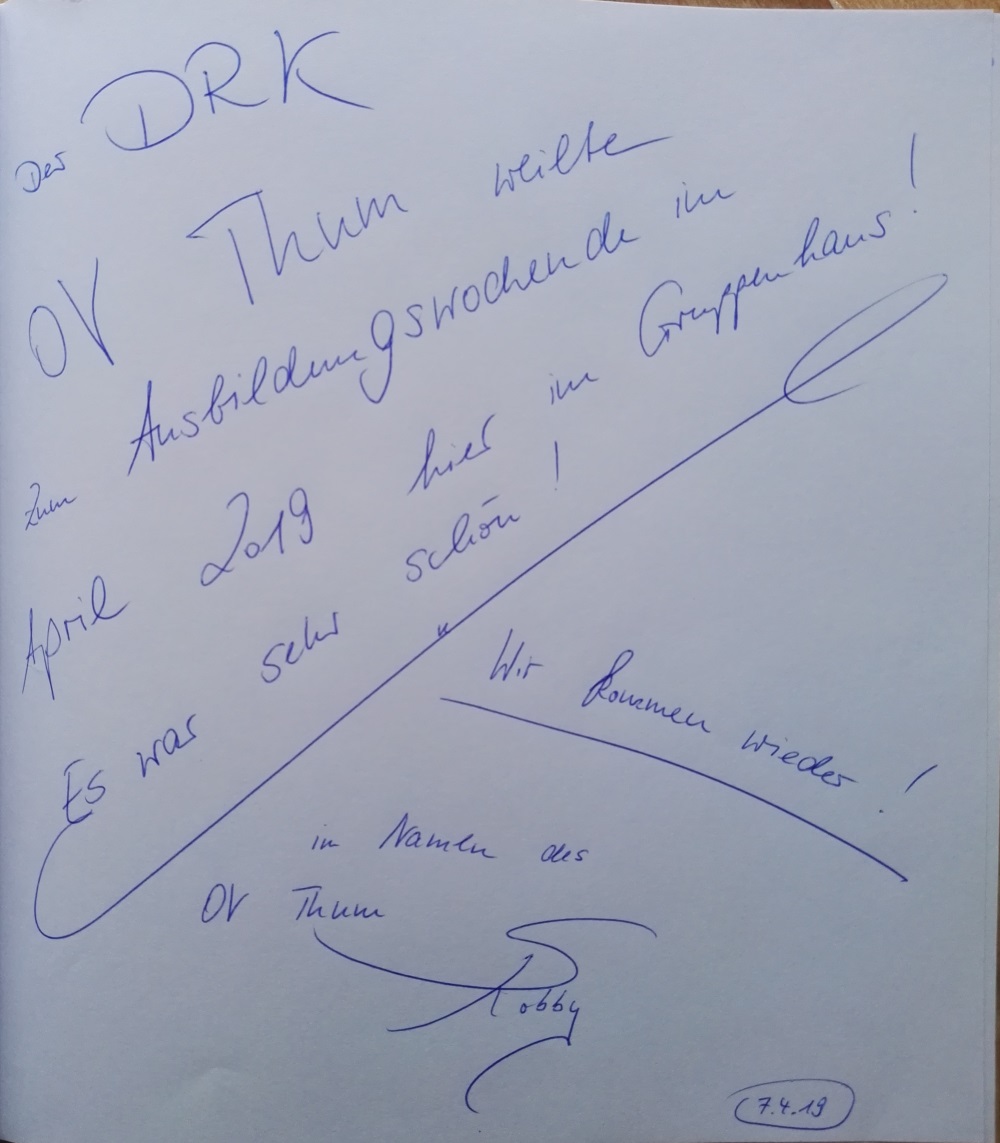 Der DRK
OV Thum weilte
zum Ausbildungswochende im
April 2019 hier im Gruppenhaus!
Es war sehr schön!
Wir kommen wieder!
im Namen des
OV Thum
Robby
7.4.19